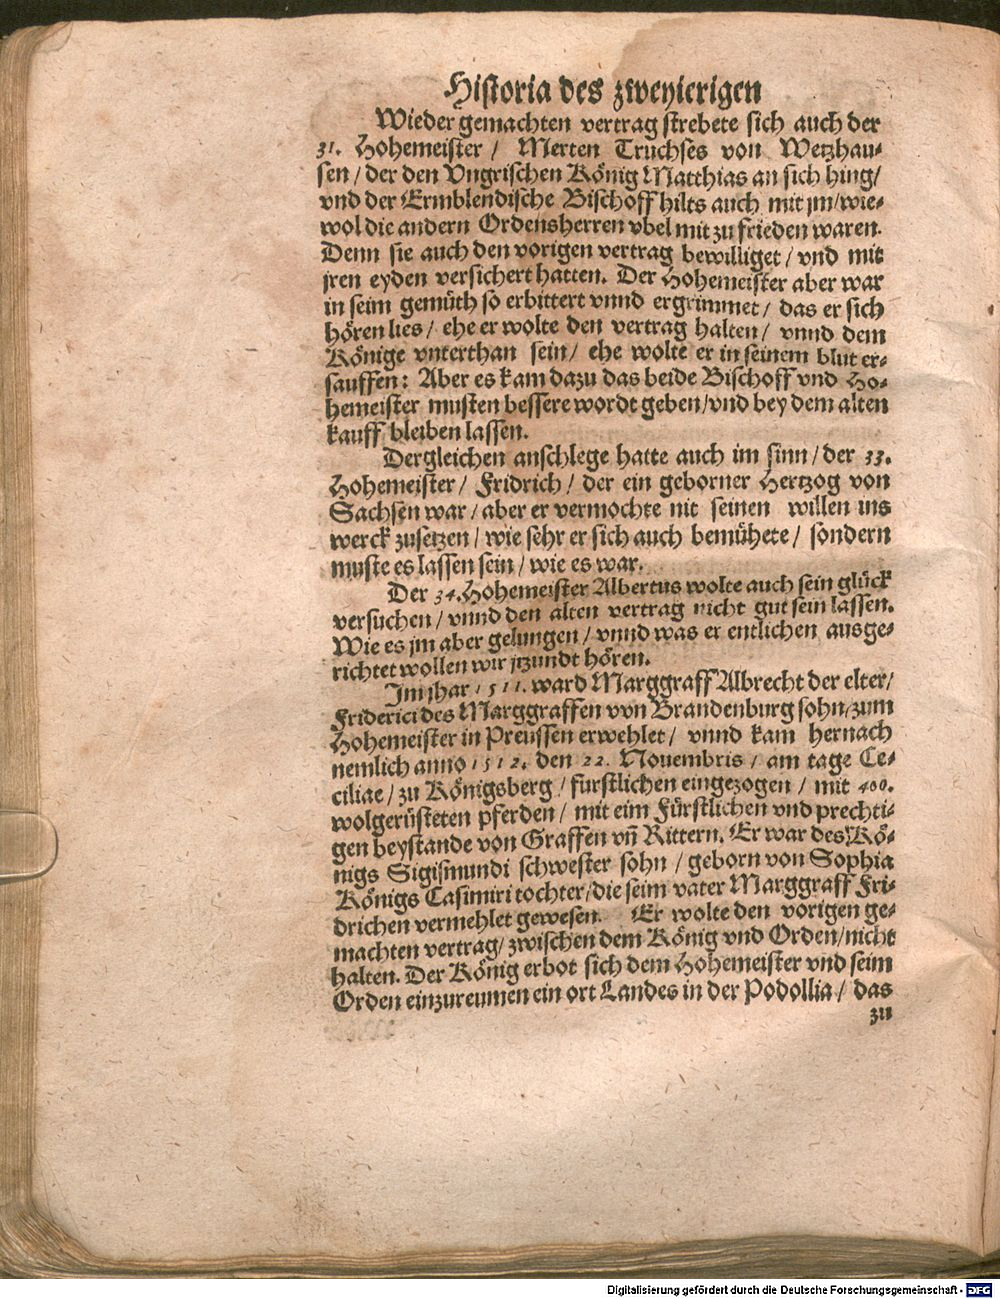 Historia des zweyierigen
Wieder gemachten vertrag strebete sich auch der
31. Hohemeister / Merten Truchses von Wetzhau-
sen / der den Vngrischen König Matthias an sich hing /
vnd der Ermblendische Bischoff hilts auch mit jm / wie-
wol die andern Ordensherren vbel mit zu frieden waren.
Denn sie auch den vorigen vertrag bewilliget / vnd mit
jren eyden versichert hatten. Der Hohemeister aber war
in seim gemüth so erbittert vnnd ergrimmet / das er sich
hören lies / ehe er wolte den vertrag halten / vnnd dem
Könige vnterthan sein / ehe wolte er in seinem blut er-
sauffen: Aber es kam dazu das beide Bischoff vnd Ho-
hemeister musten bessere wordt geben / vnd bey dem alten
kauff bleiben lassen.
Dergleichen anschlege hatte auch im sinn / der 33.
Hohemeister / Fridrich / der ein geborner Hertzog von
Sachsen war / aber er vermochte nit seinen willen ins
werck zusetzen / wie sehr er sich auch bemühete / sondern
muste es lassen sein / wie es war.
Der 34. Hohemeister Albertus wolte auch sein glück
versuchen / vnnd den alten vertrag nicht gut sein lassen.
Wie es jm aber gelungen / vnnd was er entlichen ausge-
richtet wollen wir jtzundt hören.
Im jhar 1511. ward Marggraff Albrecht der elter /
Friderici des Marggraffen von Brandenburg sohn / zum
Hohemeister in Preussen erwehlet / vnnd kam hernach
nemlich anno 1512. den 22. Nouembris / am tage Ce-
ciliae / zu Königsberg / fürstlichen eingezogen / mit 400.
wolgerüsteten pferden / mit eim Fürstlichen vnd prechti-
gen beystande von Graffen vn̄ Rittern. Er war des Kö-
nigs Sigismundi schwester sohn / geborn von Sophia
Königs Casimiri tochter / die seim vater Marggraff Fri-
drichen vermehlet gewesen. Er wolte den vorigen ge-
machten vertrag / zwischen dem König vnd Orden / nicht
halten. Der König erbot sich dem Hohemeister vnd seim
Orden einzureumen ein ort Landes in der Podollia / das
zu
Digitalisierung gefördert durch die Deutsche Forschungsgemeinschaft - DFG